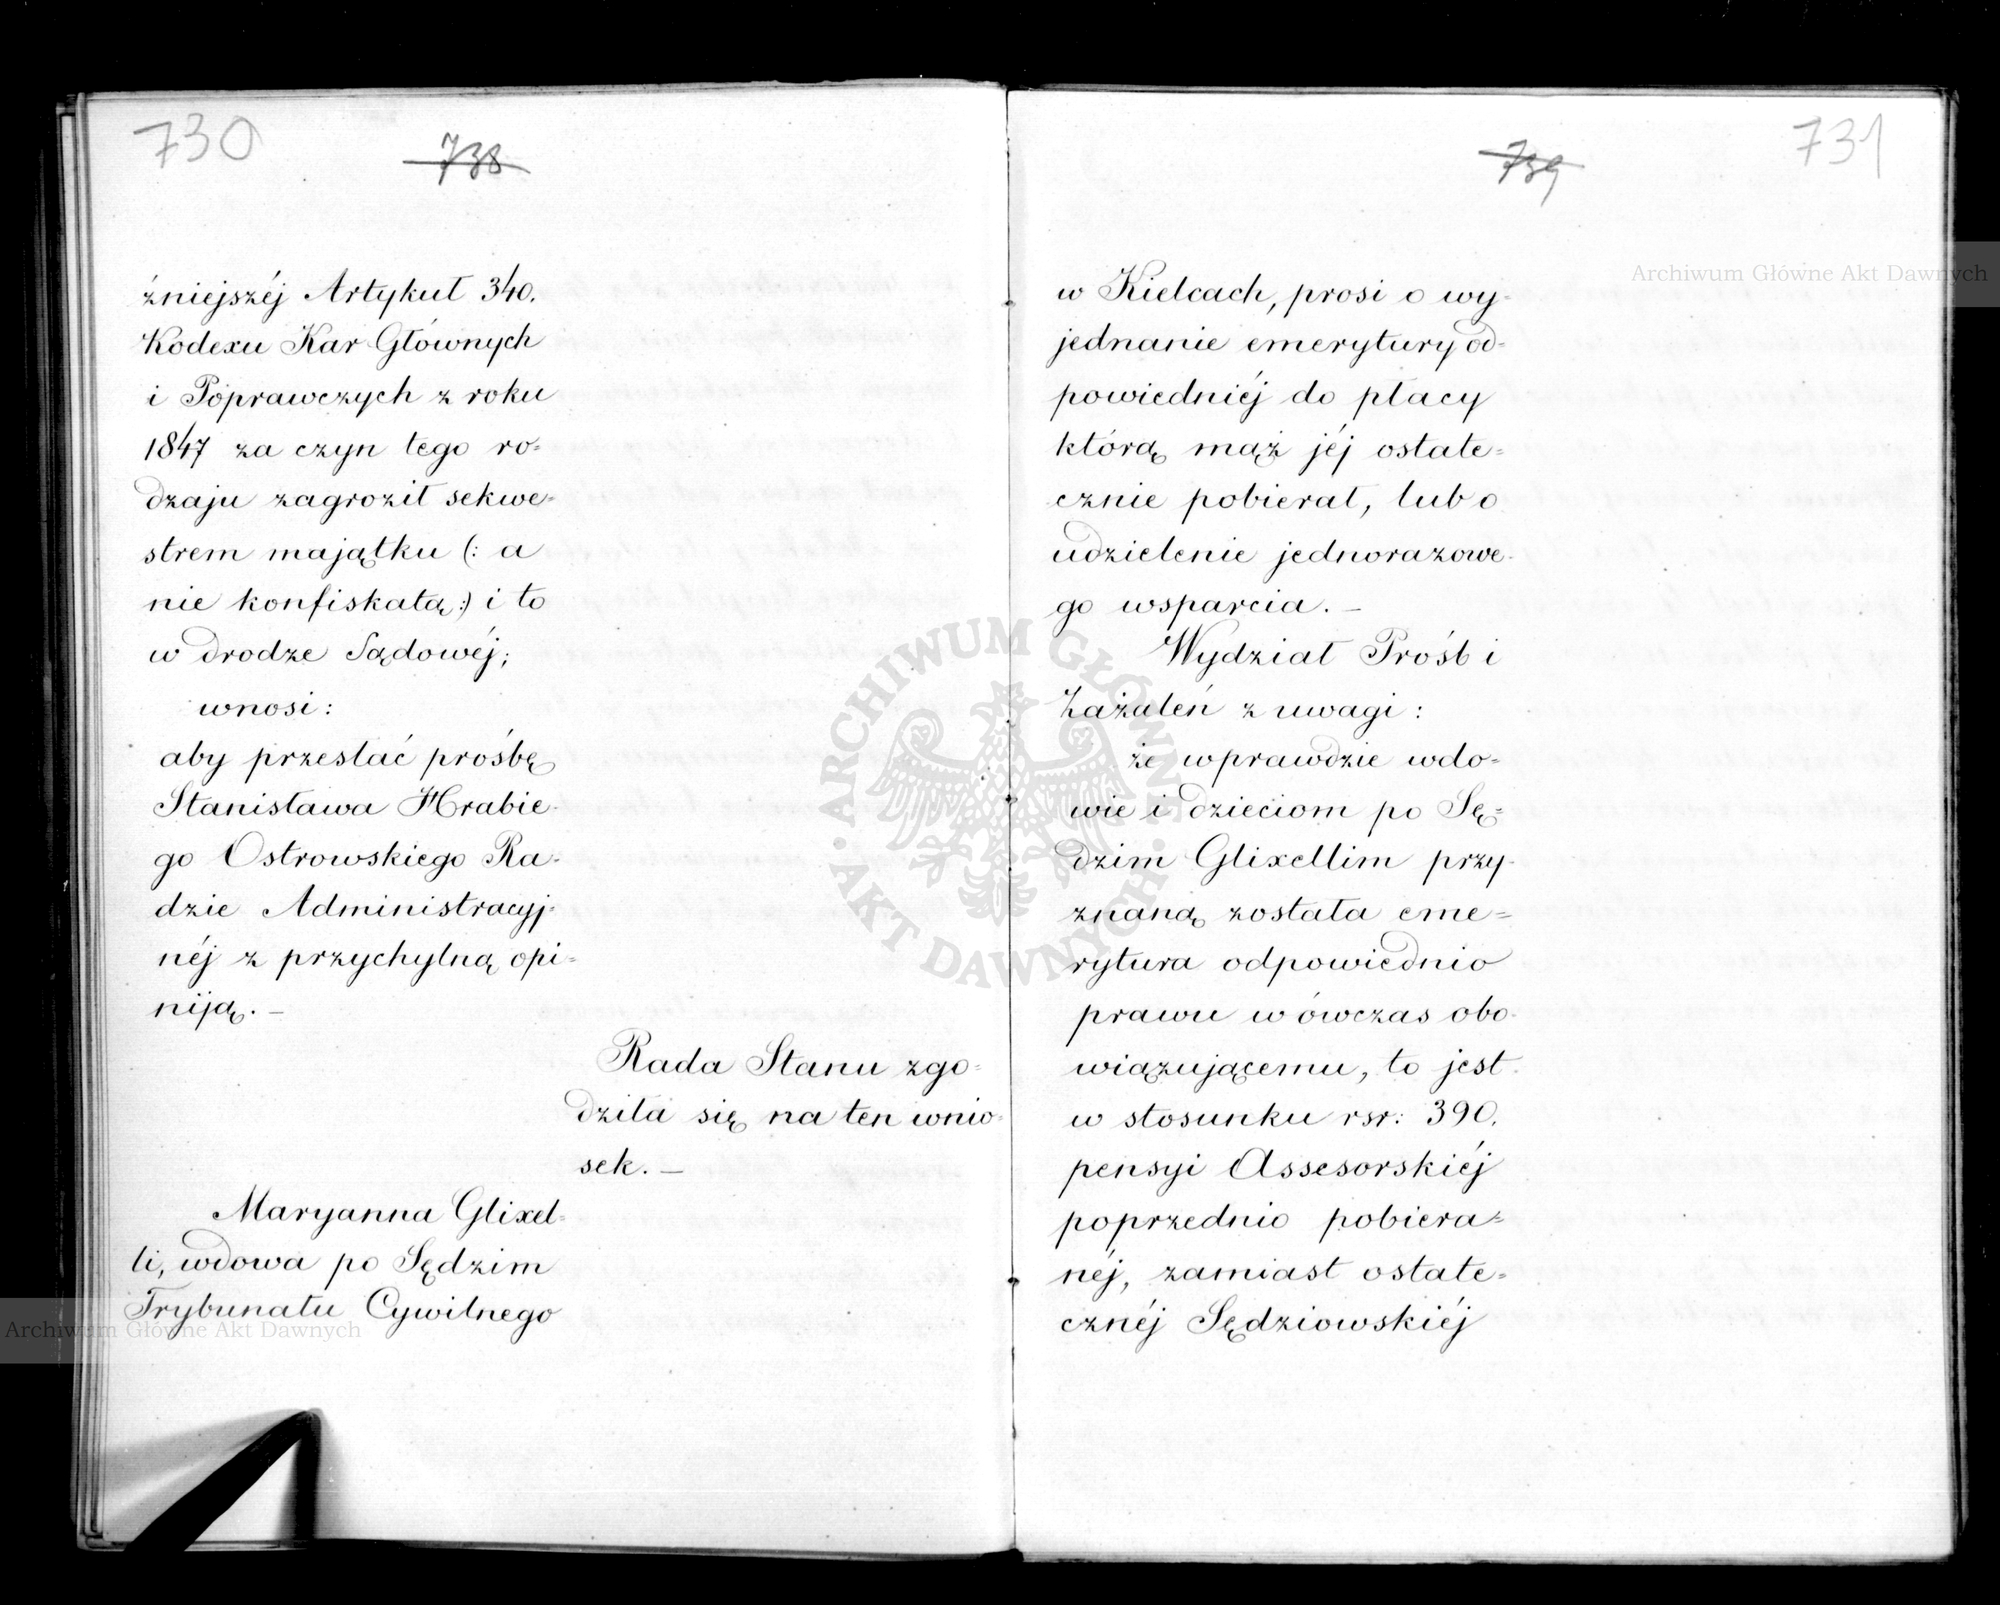 730
738
źniejszéj Artykuł 340.
Kodexu Kar Głównych
i Poprawczych z roku
1847 za czyn tego ro=
dzaju zagroził sekwe=
strem majątku (: a
nie konfiskatą :) i to
w drodze Sądowéj;
wnosi:
aby przesłać prośbę
Stanisława Hrabie-
go Ostrowskiego Ra-
dzie Administracyj-
néj z przychylną opi=
niją. —
Rada Stanu zgo=
dziła się na ten wnio-
sek. —
Maryanna Glixel=
li, wdowa po Sędzim
Trybunału Cywilnego
739
731
w Kielcach, prosi o wy-
jednanie emerytury od=
powiedniéj do płacy
którą mąż jéj ostate=
cznie pobierał, lub o
udzielenie jednorazowe-
go wsparcia. —
Wydział Próśb i
Zażaleń z uwagi:
że wprawdzie wdo=
wie i dzieciom po Sę=
dzim Glixellim przy-
znaną została eme=
rytura odpowiednio
prawu w ówczas obo-
wiązującemu, to jest
w stosunku rsr: 390.
pensyi Assesorskiéj
poprzednio pobiera=
néj, zamiast ostate=
cznéj Sędziowskiéj
Archiwum Główne Akt Dawnych
ARCHIWUM GŁÓWNE · AKT DAWNYCH ·
Archiwum Główne Akt Dawnych